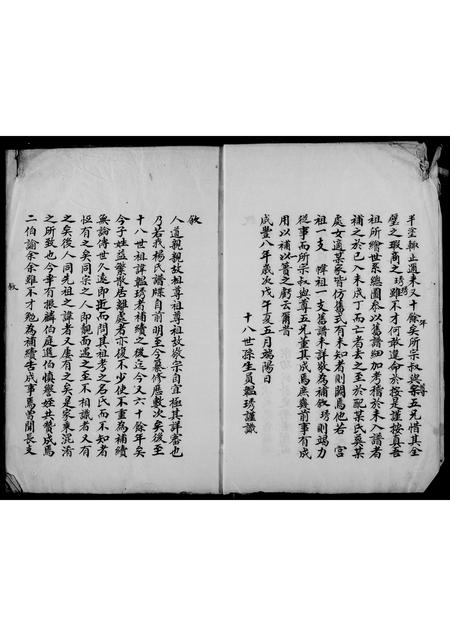 半塗輒止適來又十餘矣所宗叔與尊五兄惜其全
璧之瑕商之琇琇雖不才何敢違命於按是謹按真吾
祖所繪世系總圖叅以舊譜細加考稽於未入譜者
補之於已入未成丁而亡者去之至於配某氏塟某
處女適某家皆仿舊式有未知者則闕焉他若宮
祖一支 幃祖一支舊譜未詳敬為補敘琇則竭力
從事而所宗叔與尊五兄董其成焉庶幾前事有成
用以補以簣之虧云爾昔
咸豐八年歲次戊午夏五月端陽日
十八世孫生員韞琇謹識
敘
人道親親故祖尊祖尊祖故敬宗自宜極其詳審也
乃若我楊氏譜牒自前明至今纂修應數次矣後至
十八世祖諱韞琇者補續之後迄今又六十餘年矣
今子姓益繁散居離處者亦復不少使不重為補續
無論傳世久遠即逝而問其祖考之名氏而不知者
恒有之矣同宗之人即覿面遇之至不相識者又有
之矣後人同先祖之諱者又屢有之矣是家乘混淆
之所致也今幸有振麟伯庭選伯慎譽姪共贊成焉
二伯諭余余雖不才勉為補續告成事焉曽聞長支